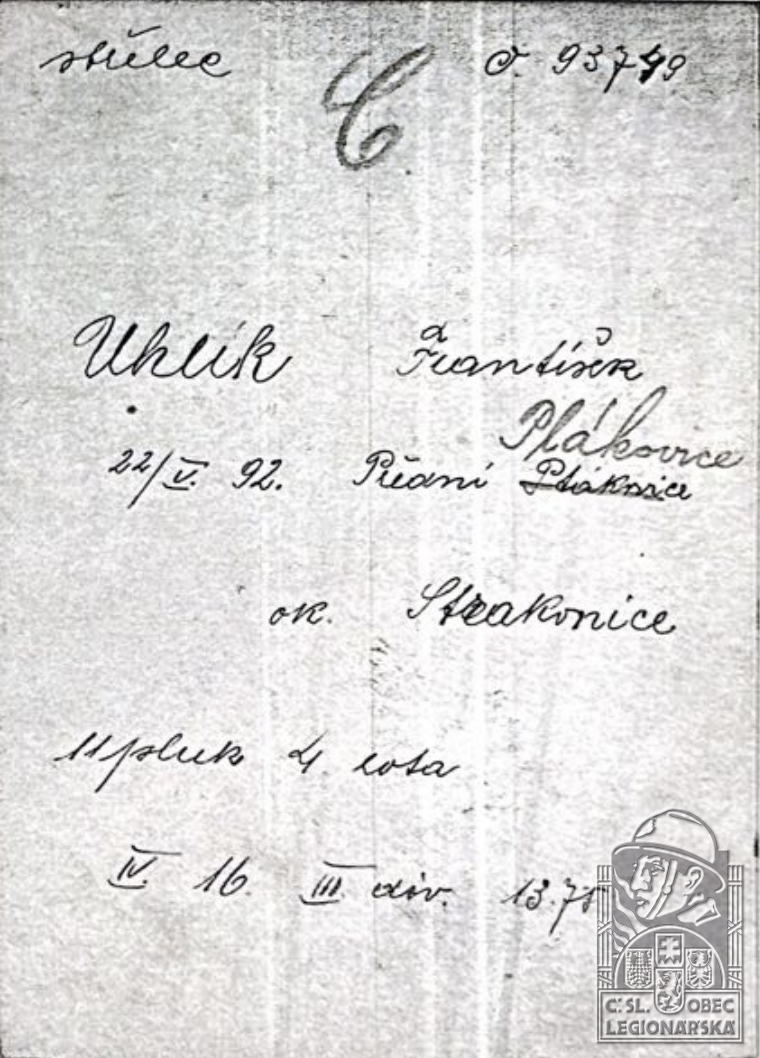 střelec C č. 93749
Uhlík František
Plákovice
22/V. 92. Přední Ptákovice
ok. Strakonice
11 pluk 4 rota
IV. 16. III div.
Č.SL. OBEC
LEGIONÁŘSKÁ